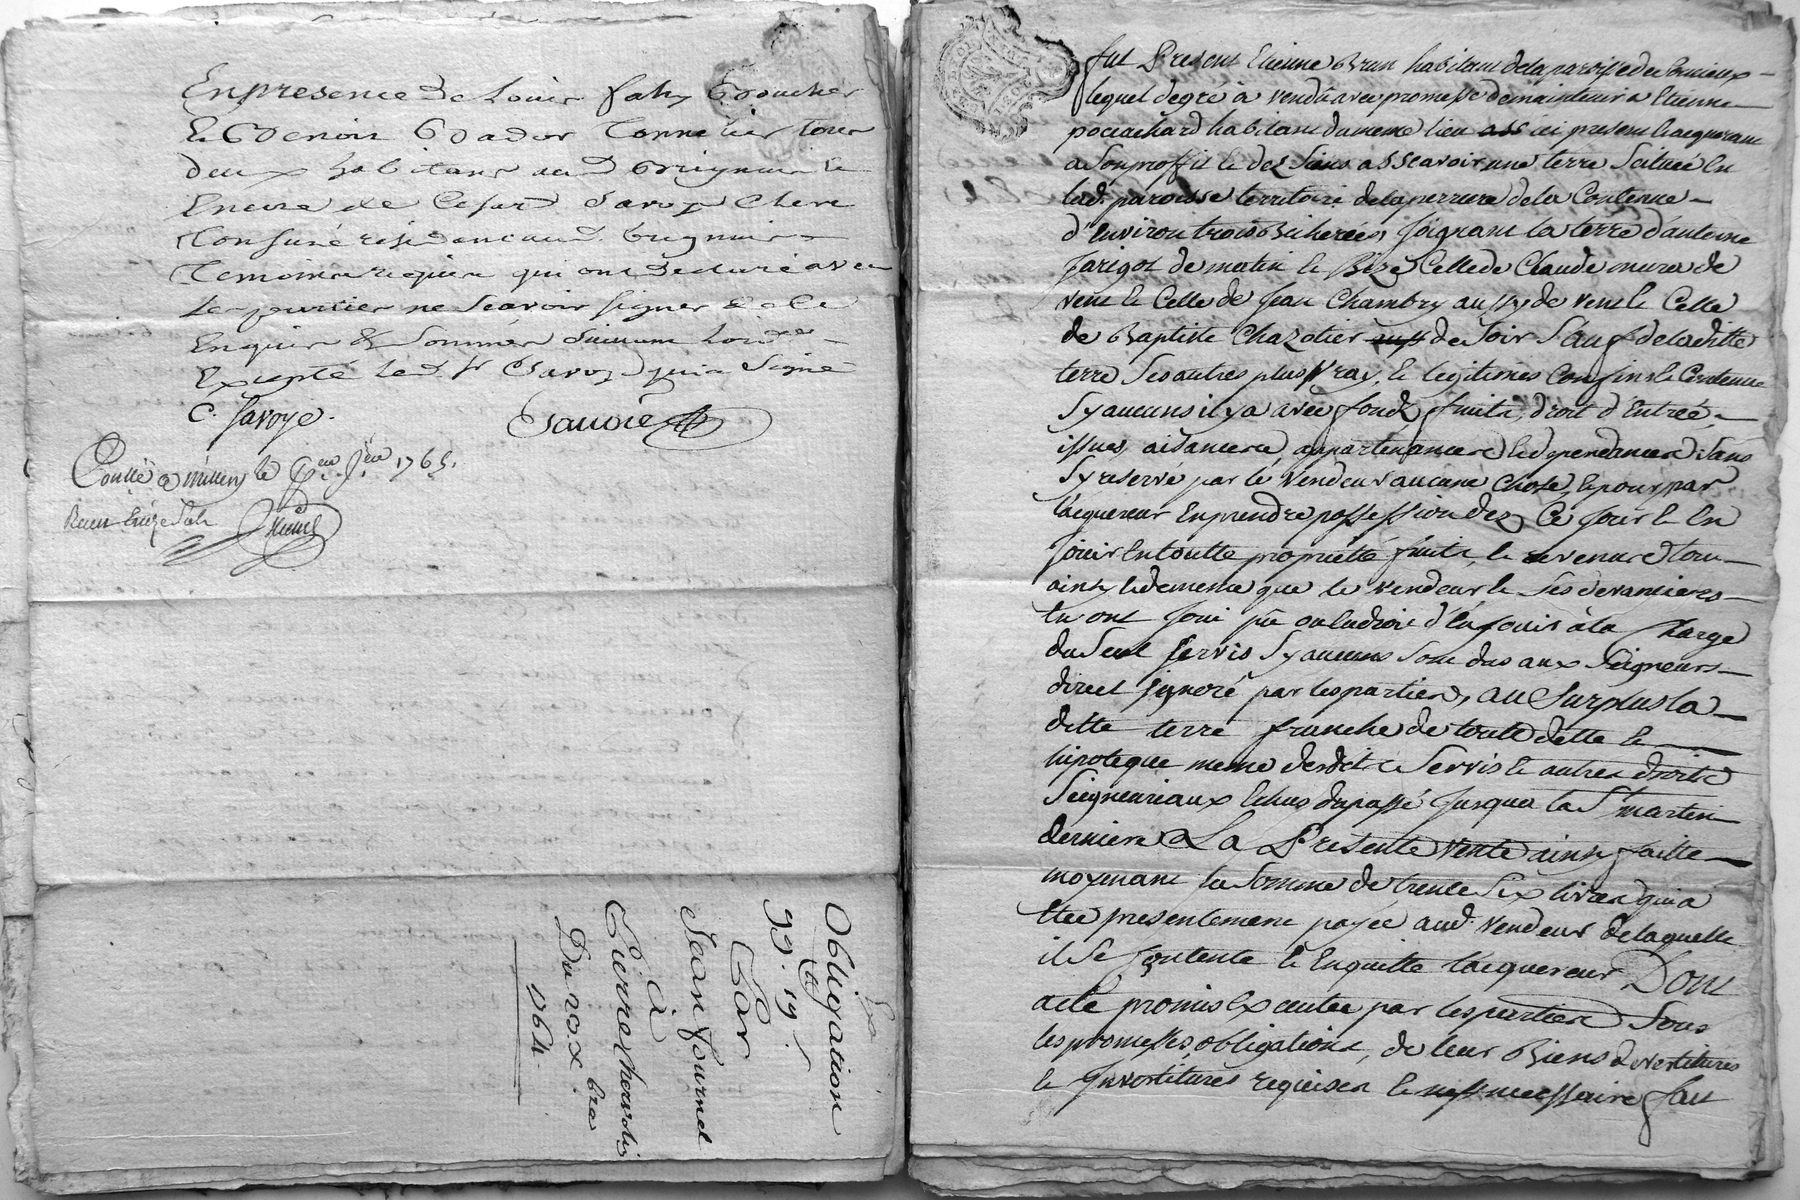 En presence de Louis faly Boucher
Et Benoit Bador Tonnelier tous
deux habitans aud Brignais &
Encore de Cesar Savoy Clerc
Tonsuré residant aud. brignais
Temoins requis qui ont declaré avec
Les parties ne scavoir signer de ce
Enquis & sommés suivant
Excepté led. Sr Savoy qui a signé
C. Savoye.
Conllé a millery le Jer 1765.
Receu treize sols
Obligation
99 l. 19 s.
Par
Jean fournel
à
Pierre
Duroux
1764.
fut Present Etienne Brun habitant de la paroisse de
lequel de gré à vendû avec promesse de maintenir a Etienne
habitant du meme lieu ici present & acquerant
a son proffit & des siens assçavoir une terre scituée En
lad. paroisse territoire de la perriere de la Contenue
d'Environ trois Bicherées, Joignant la terre d'antoine
Jarigot de matin & Bize Celle de Claude mura de
vent & Celle de Jean Chambry aussy de vent & Celle
de Baptiste Chazotier de Soir Sauf de laditte
terre Ses autres plus vray, & legitimes Confins & Contenue
Sy aucuns il y a avec fondz, fruits, droit d'Entrée,
issues, aisances, appartenances & dependances Sans
Sy reservé par le vendeur aucune Chose, & pour par
l'acquereur En prendre possession dez Ce Jour & En
Jouir En toutte proprieté fruits, & revenus tout
ainsy & de meme que le vendeur & Ses devanciers
En ont Joui pû ou dû d'En Jouir à la Charge
du Seul Servis Sy aucuns Sont dus aux Seigneurs
direct ignoré par les parties, au Surplus la
ditte terre franche de toute dette &
hipoteque meme desdits Servis & autres droits
Seigneuriaux Echus du passé Jusqua la St martin
derniere La Presente vente ainsy faitte
moyenant la Somme de trente Six livres qui a
Etée presentement payée aud. vendeur de laquelle
il Se Contente & Enquitte l'acquereur Dont
acte promis Executer par les parties Sous
les promesses, obligations, de leur Biens devestitures
& Investitures requises & necessaire fait